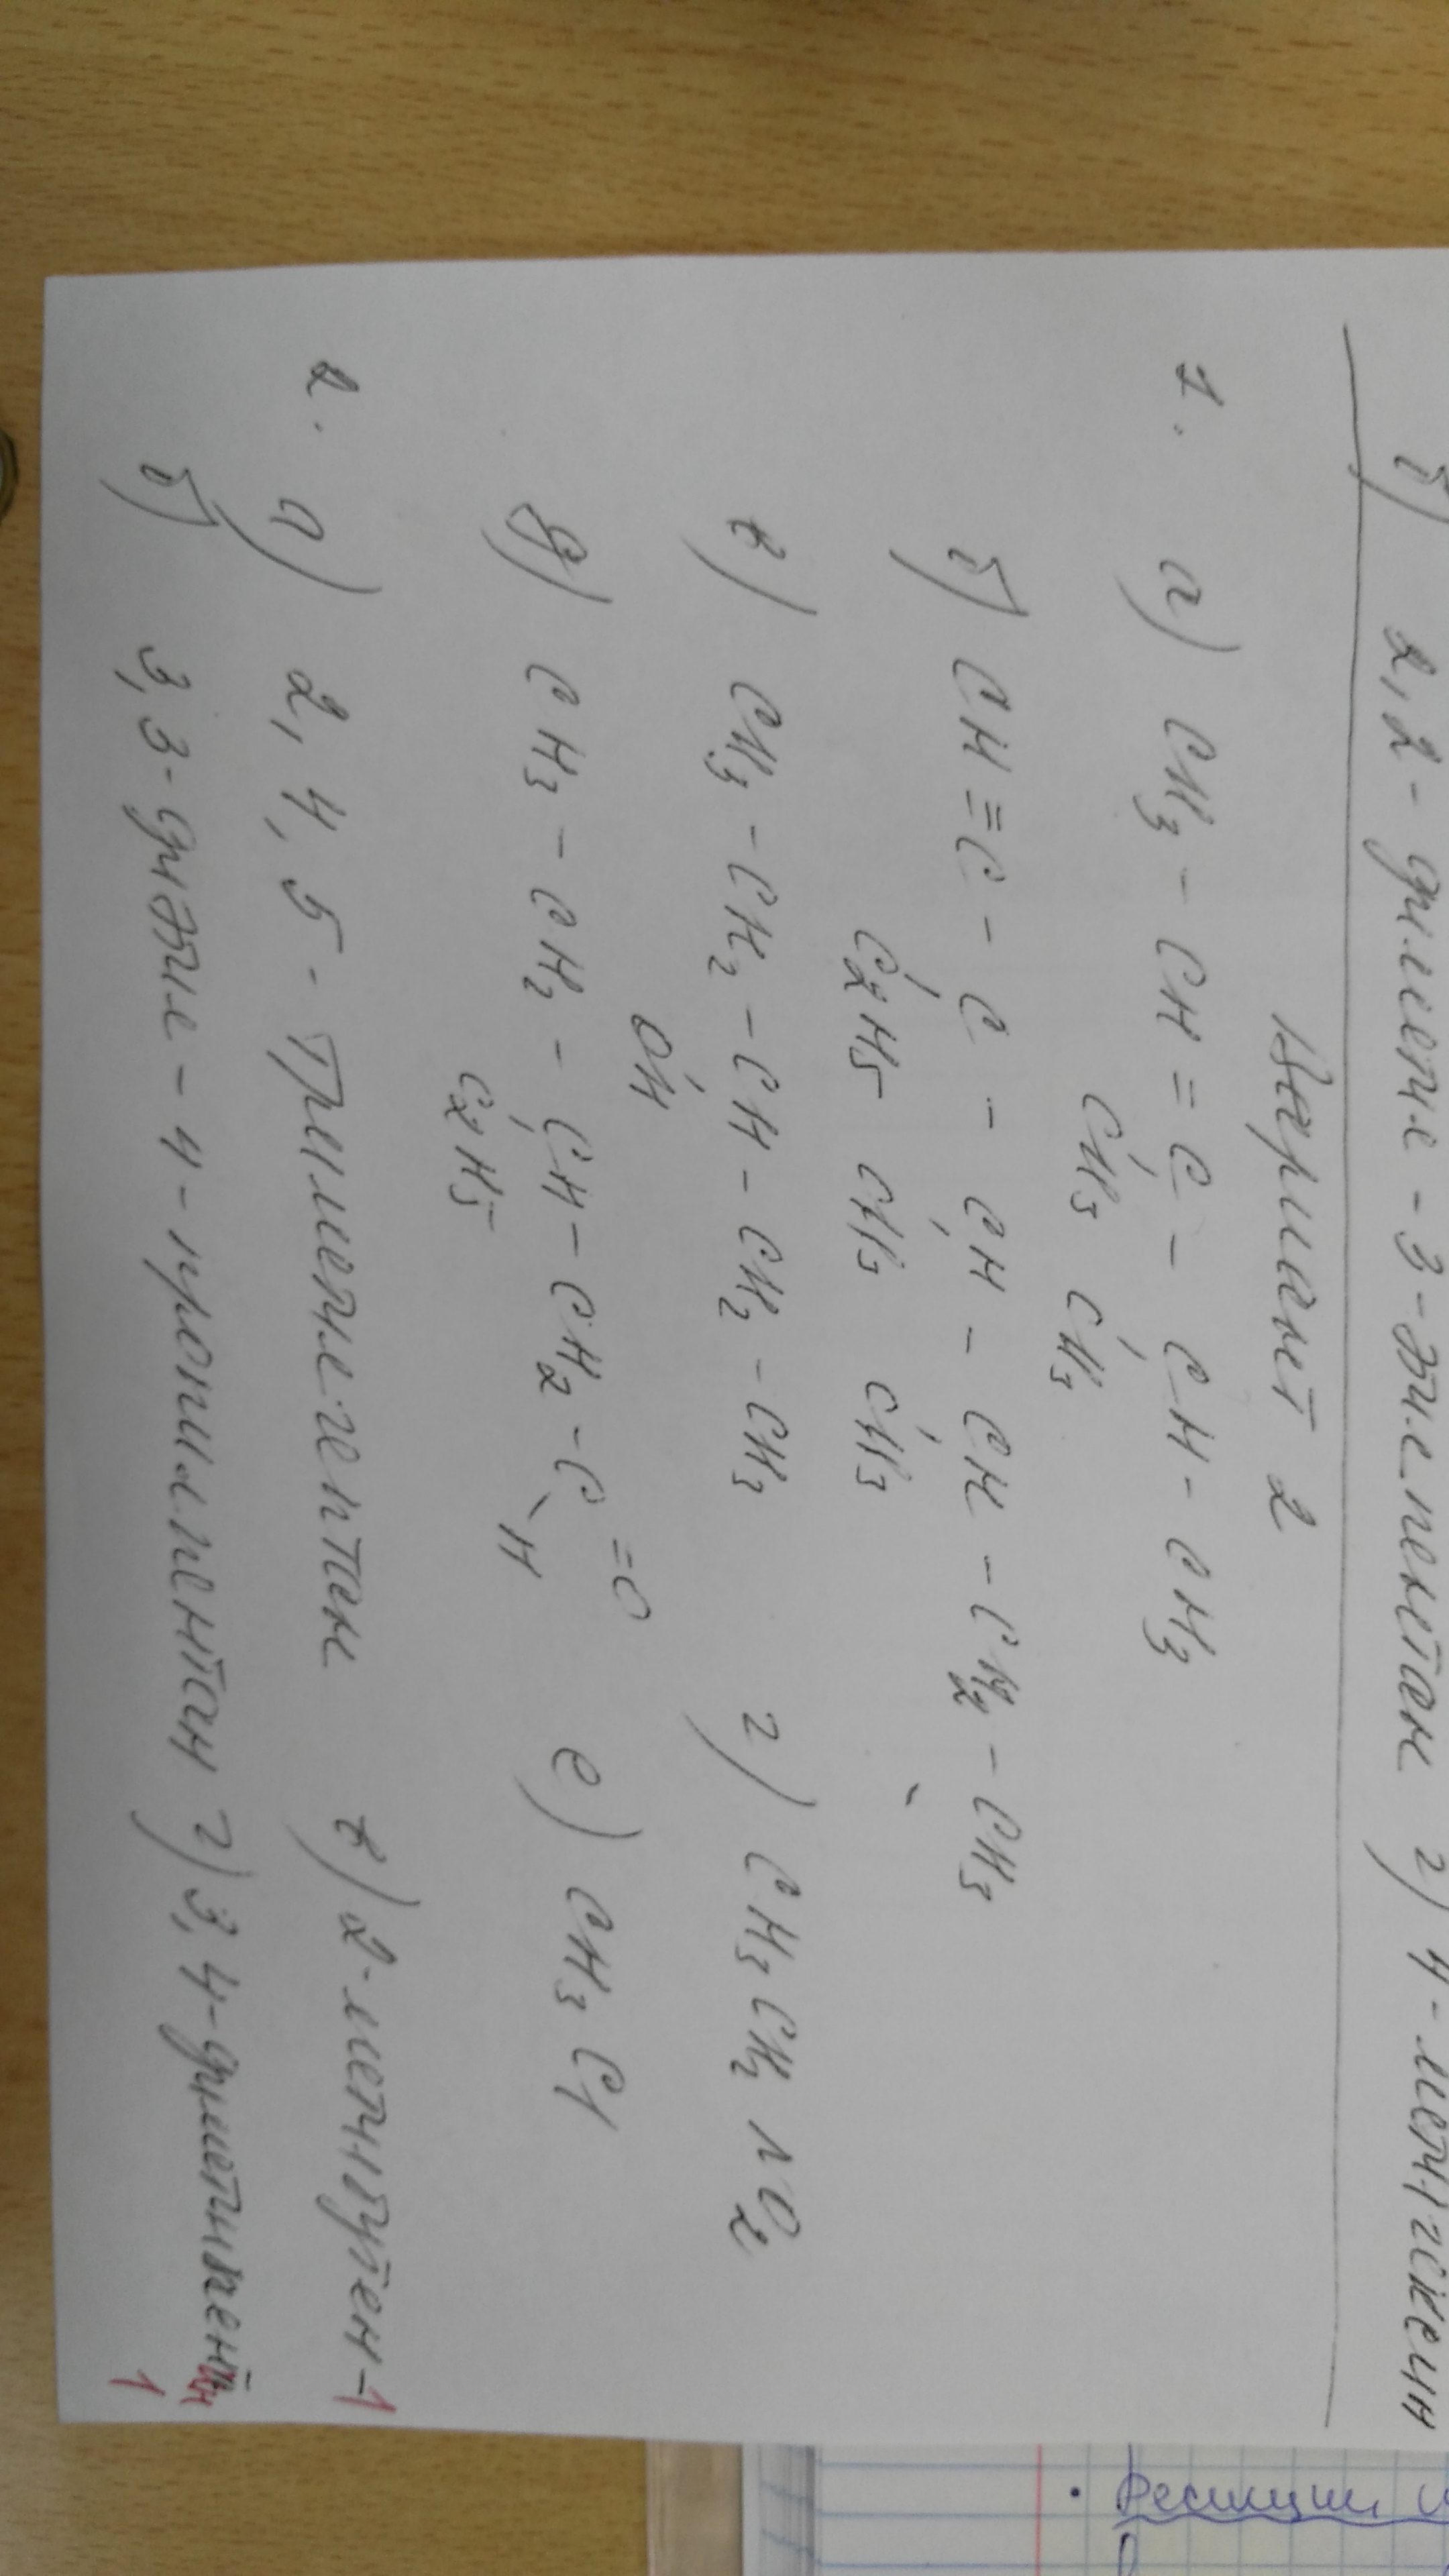 б) 2,2-диметил-3-этилпентан г) 4-метилгексин
Вариант 2
CH3 CH3
1. а) CH3 - CH = C - CH - CH3
б) CH ≡ C - C - CH - CH - CH2 - CH3
C2H5 CH3 CH3
в) CH3 - CH2 - CH - CH2 - CH3 г) CH3CH2NO2
OH
д) CH3 - CH2 - CH - CH2 - C =O е) CH3Cl
H
C2H5
2. а) 2,4,5-триметилгептан в) 2-метилбутен-1
б) 3,3-диэтил-4-пропилпентан г) 3,4-диметилпентин
1
Реакции